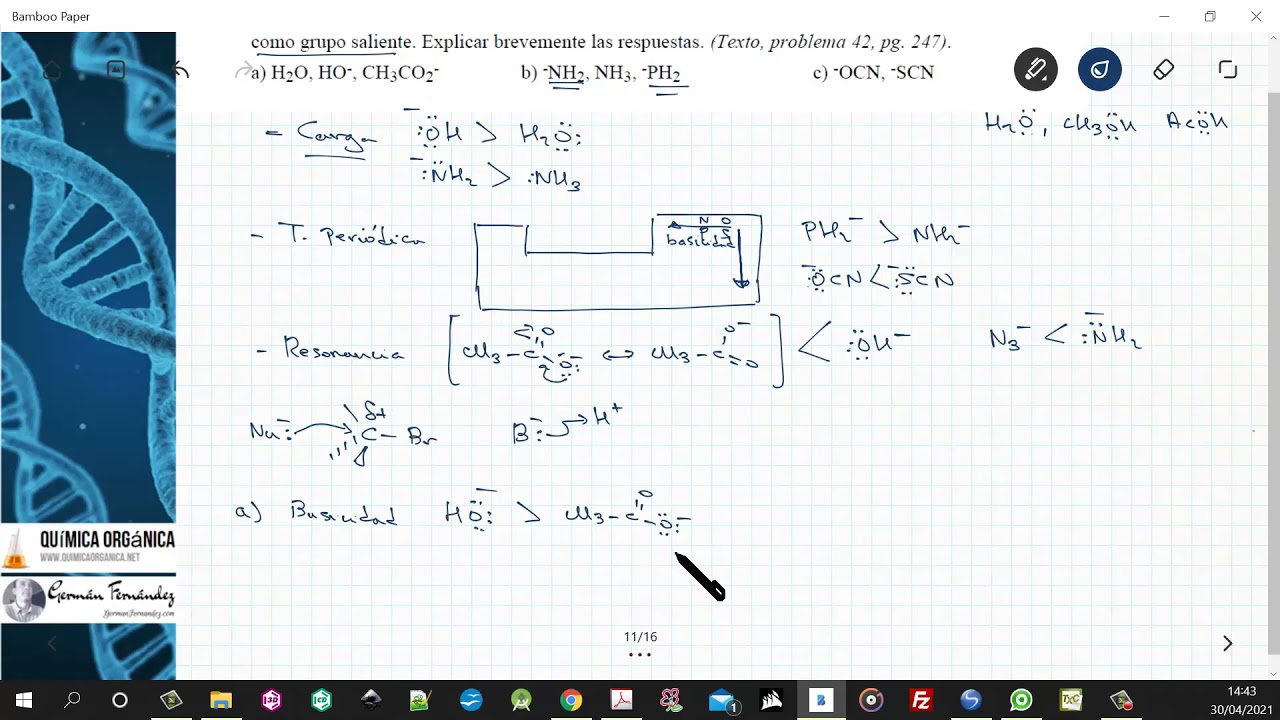 Bamboo Paper
como grupo saliente. Explicar brevemente las respuestas. (Texto, problema 42, pg. 247).
a) H2O, HO-, CH3CO2- b) -NH2, NH3, -PH2 c) -OCN, -SCN
- Carga -:ÖH > H2Ö: H2Ö, CH3ÖH AcÖH
-:NH2 > :NH3
- T. Periódica N O PH2- > NH2-
P S
basicidad
-:ÖCN < -:SCN
- Resonancia [CH3-C O O:- ↔ CH3-C O- O] < :ÖH- N3- < -:NH2
Nu:- C δ+ - Br B:- H+
a) Basicidad HÖ:- > CH3-C O -Ö:-
QUÍMICA ORGÁNICA
WWW.QUIMICAORGANICA.NET
Germán Fernández
GermanFernandez.com
11/16
1
14:43
30/04/2021